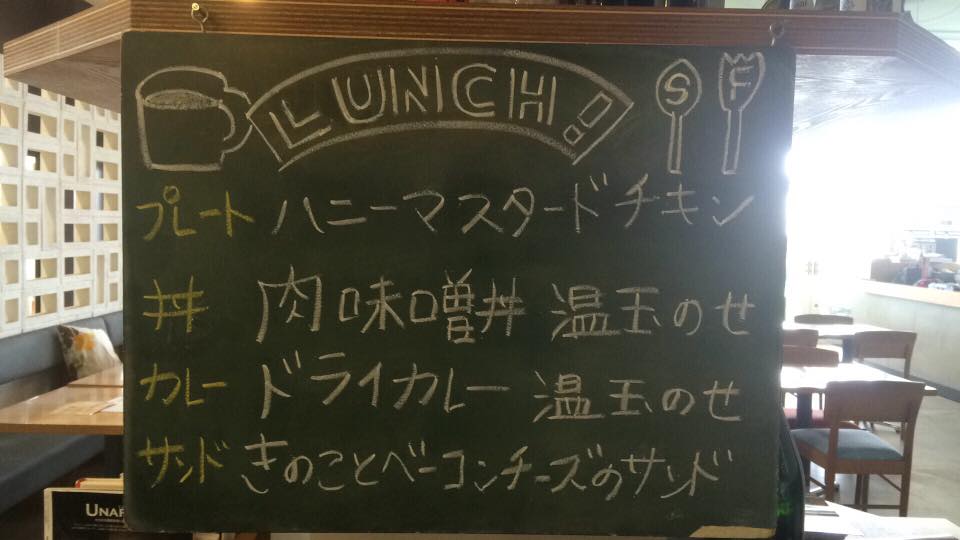 LUNCH!
S F
プレート ハニーマスタードチキン
丼 肉味噌丼 温玉のせ
カレー ドライカレー 温玉のせ
サンド きのことベーコンチーズのサンド